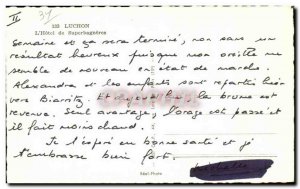 II
37
333 LUCHON
L'Hôtel de Superbagnères
Semaine et ça sera terminé, non sans un
résultat heureux puisque mon oreille me
semble de nouveau en état de marche.
Alexandra et les enfants sont repartis hier
vers Biarritz. Et aujourd'hui, la brume est
revenue. Seul avantage, l'orage est passé et
il fait moins chaud.
Je t'espère en bonne santé et je
t'embrasse bien fort.